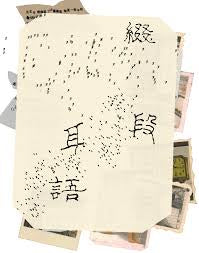 綴段
耳語